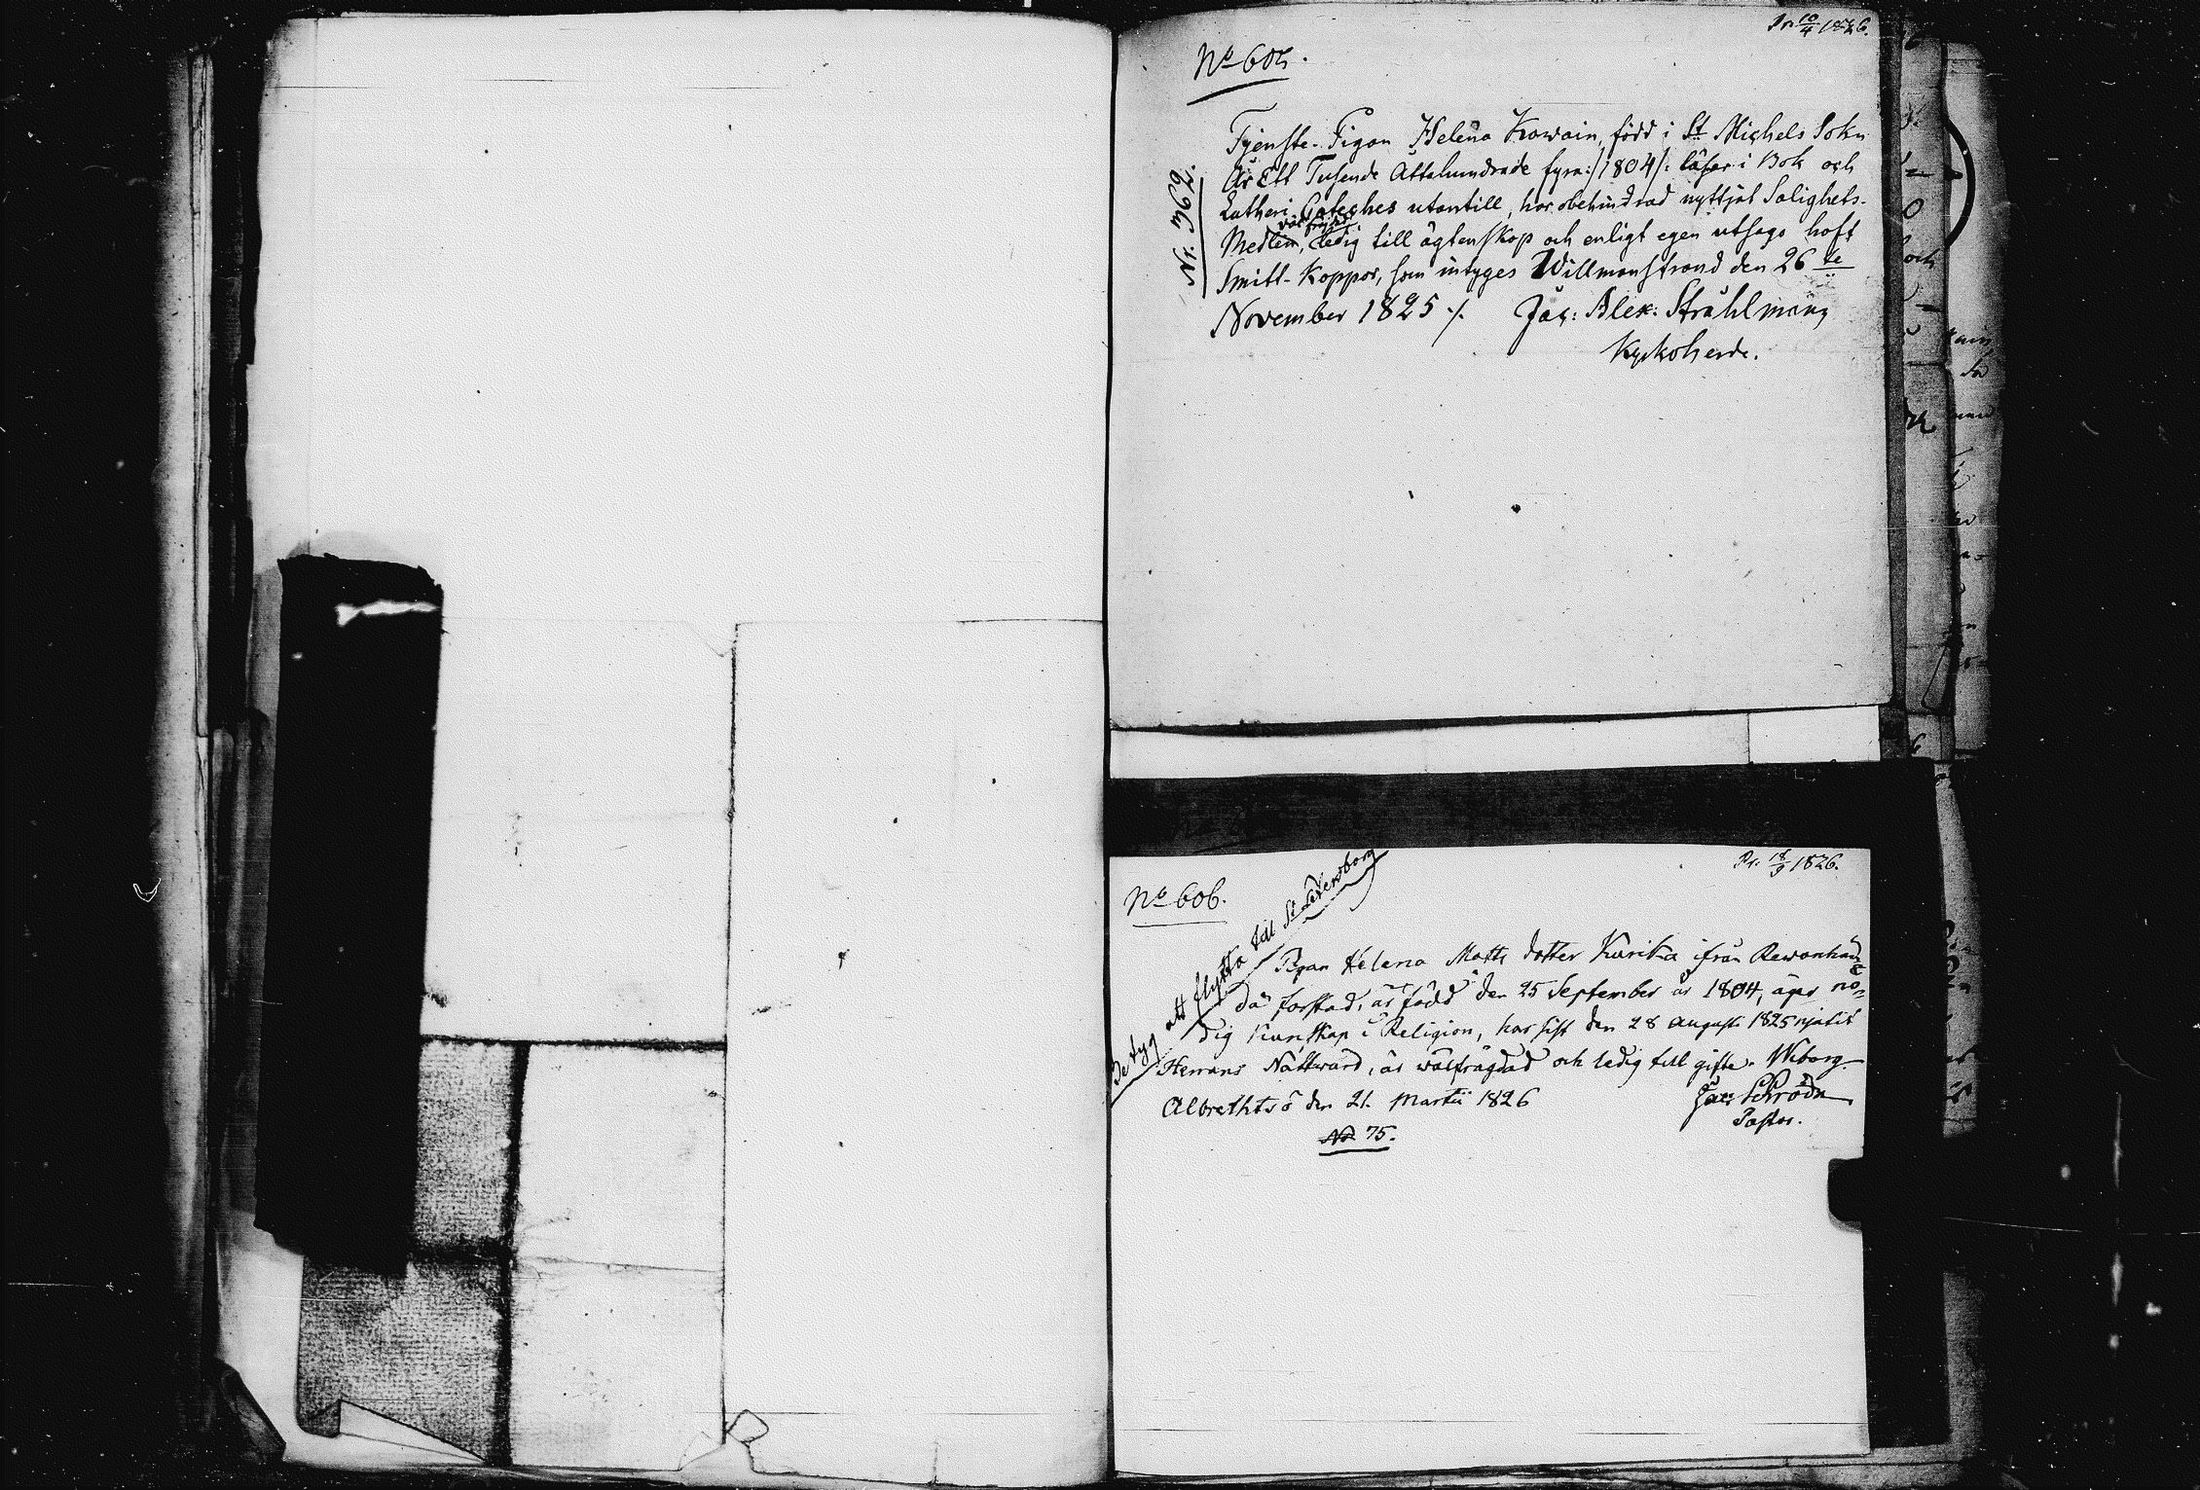 Pr. 10/4 1826.
No 605.
Nr. 362.
Tjenste-Pigan Helena Kowain, född i St Michels Sokn
År Ett Tusende Åttahundrade fyra :/1804/: läser i Bok och
Lutheri Cateches utantill, har obehindrad nyttjat Salighets-
välfrejdad
Medlen, ledig till ägtenskap och enligt egen utsago haft
Smitt-Koppor, som intyges Willmanstrand den 26 te
November 1825 ./. Jac: Alex: Stråhlman
Kyrkoherde.
Pr. 18/9 1826.
No 606.
Betyg att flytta till St Petersborg
Pigan Helena Matts dotter Kurikka ifrån Rewonhän
dä forstad, är född den 25 September år 1804, äger nö-
dig Kunskap i Religion, har sist den 28 Augusti 1825 njutit
Herrans Nattward, är wälfrägdad och ledig till gifte. Wiborg
Albrethtsö den 21. Martii 1826
Jac: Schröder
Pastor.
No 75.